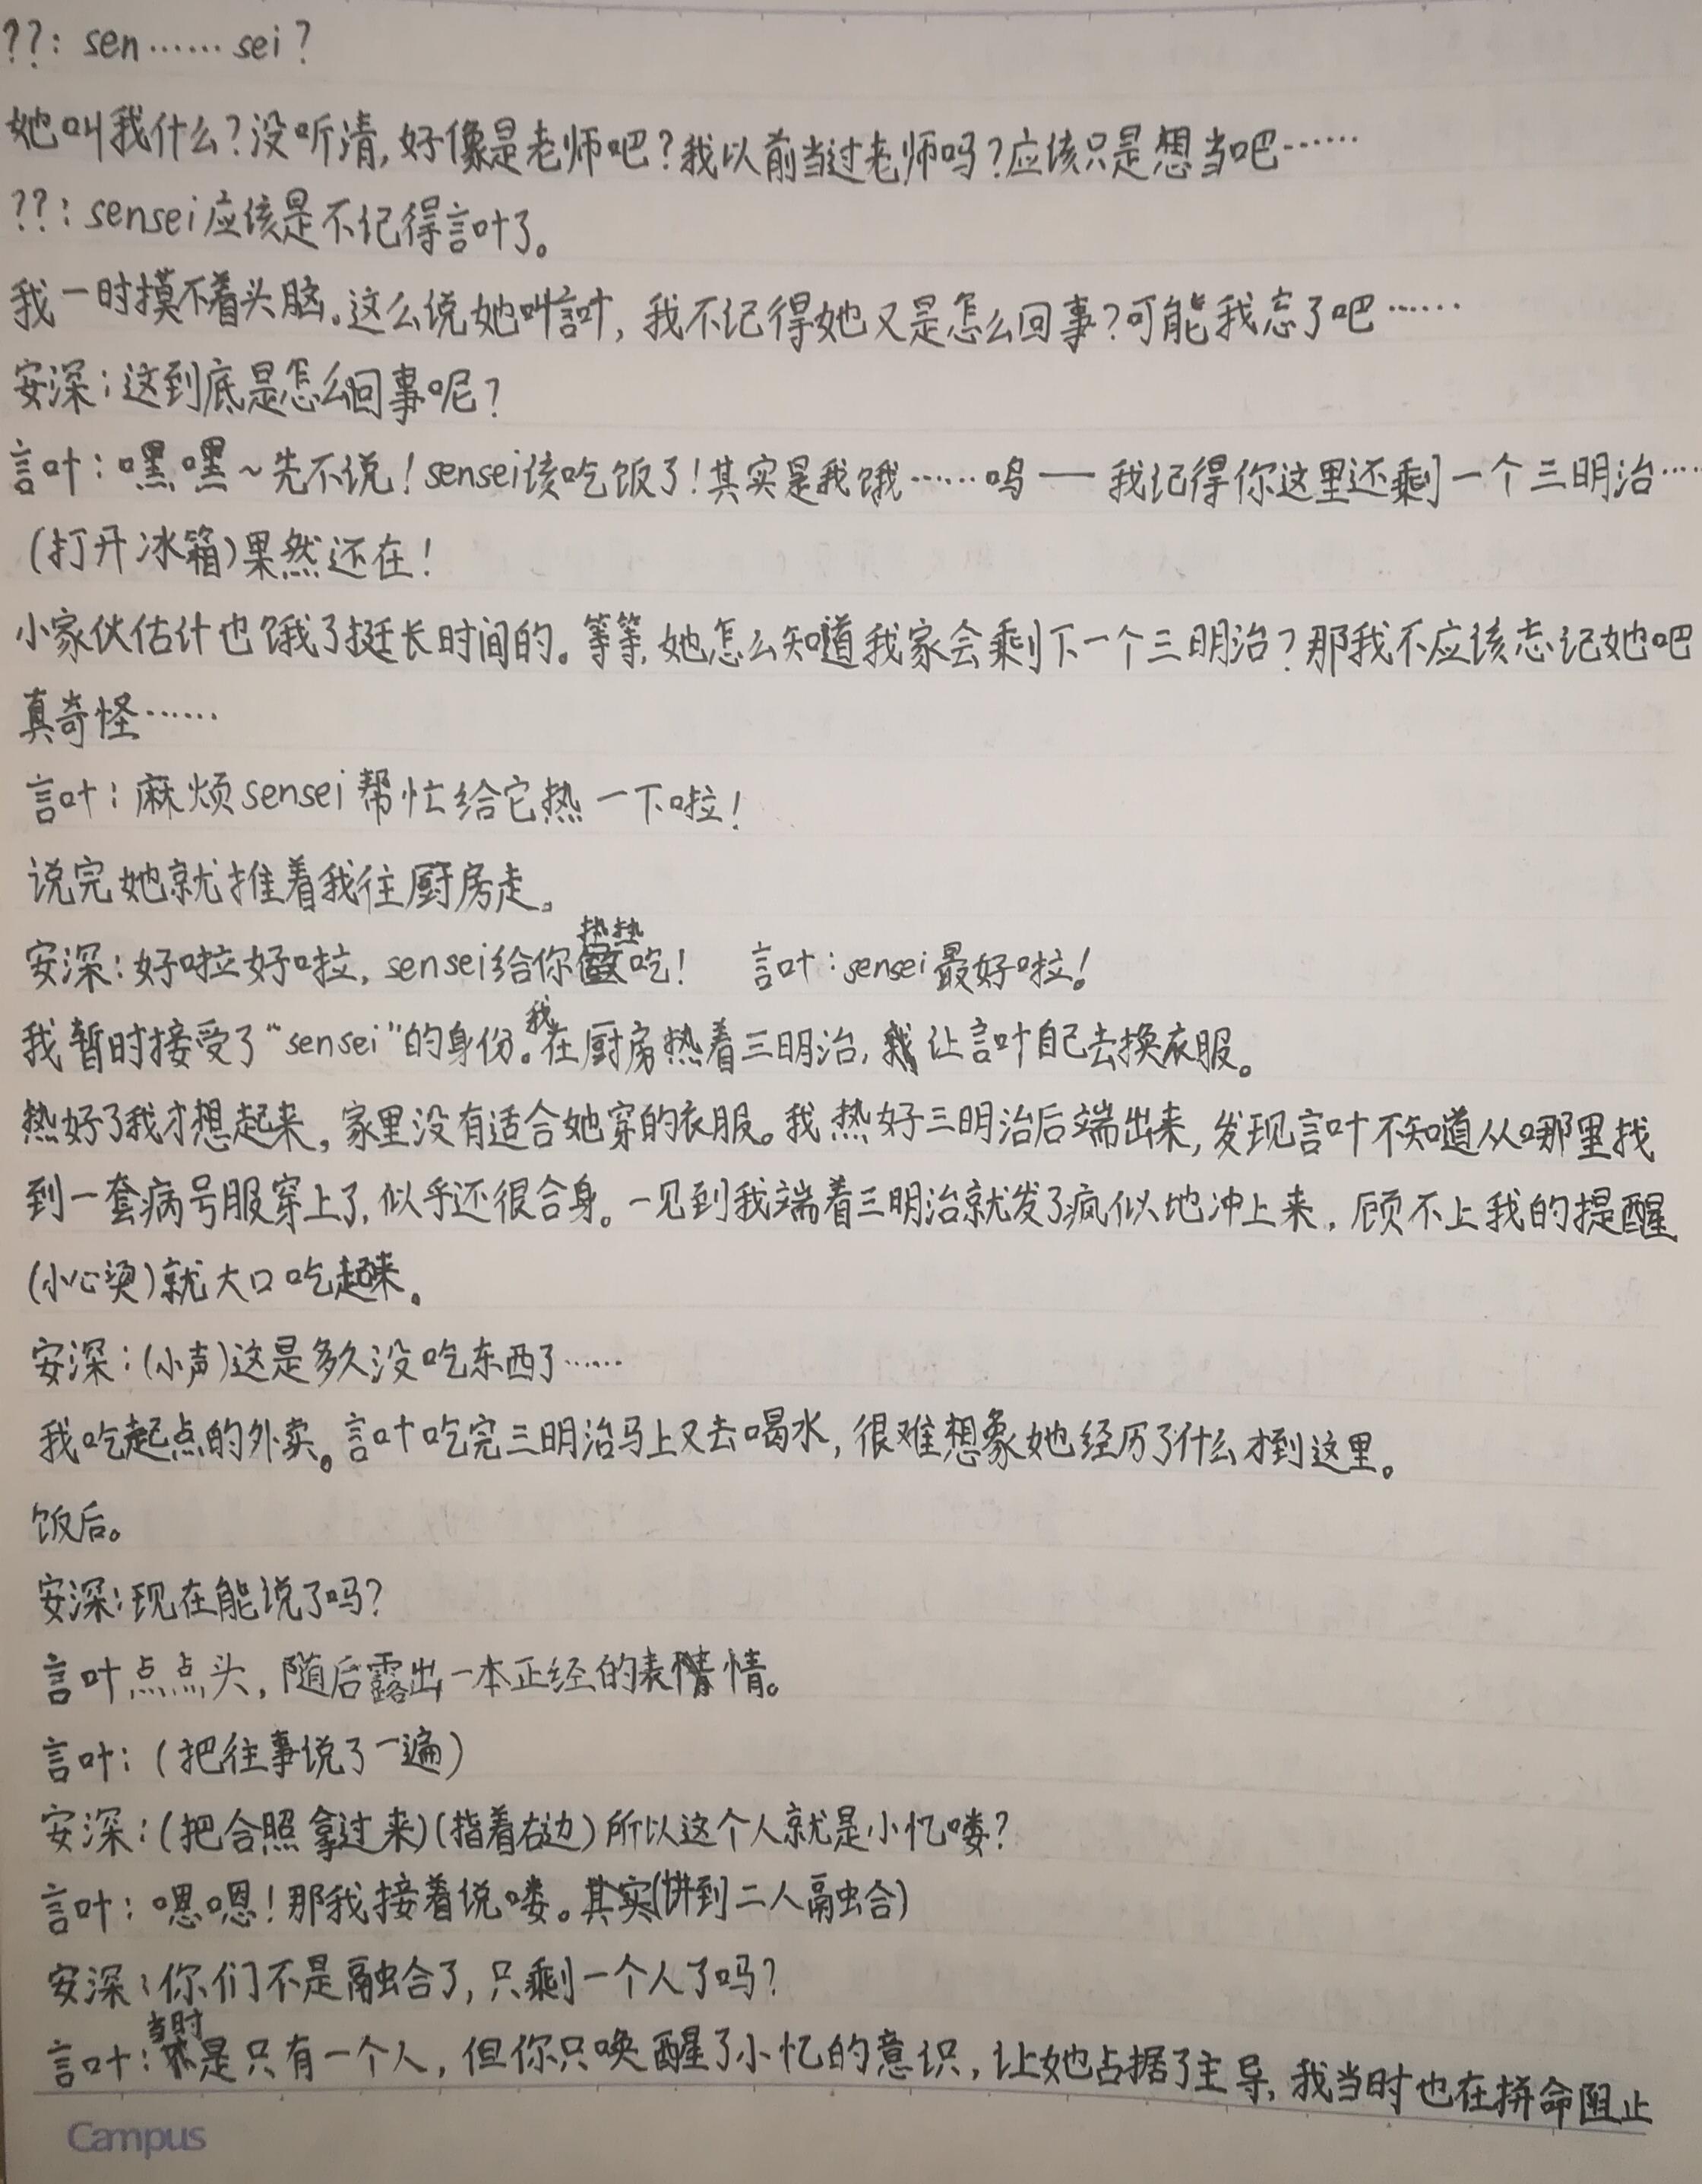 ??：sen……sei？
她叫我什么？没听清，好像是老师吧？我以前当过老师吗？应该只是想当吧……
??：sensei应该是不记得言叶了。
我一时摸不着头脑。这么说她叫言叶，我不记得她又是怎么回事？可能我忘了吧……
安深：这到底是怎么回事呢？
言叶：嘿嘿~先不说！sensei该吃饭了！其实是我饿……呜——我记得你这里还剩一个三明治……
(打开冰箱)果然还在！
小家伙估计也饿了挺长时间的。等等，她怎么知道我家会剩下一个三明治？那我不应该忘记她吧
真奇怪……
言叶：麻烦sensei帮忙给它热一下啦！
说完她就推着我往厨房走。
安深：好啦好啦，sensei给你热热吃！ 言叶：sensei最好啦！
我暂时接受了“sensei”的身份。我在厨房热着三明治，让言叶自己去换衣服。
热好了我才想起来，家里没有适合她穿的衣服。我热好三明治后端出来，发现言叶不知道从哪里找
到一套病号服穿上了，似乎还很合身。一见到我端着三明治就发了疯似地冲上来，顾不上我的提醒
(小心烫)就大口吃起来。
安深：(小声)这是多久没吃东西了……
我吃起点的外卖。言叶吃完三明治马上又去喝水，很难想象她经历了什么才到这里。
饭后。
安深：现在能说了吗？
言叶点点头，随后露出一本正经的表情。
言叶：(把往事说了一遍)
安深：(把合照拿过来)(指着右边)所以这个人就是小忆喽？
言叶：嗯嗯！那我接着说喽。其实(讲到二人融合)
安深：你们不是融合了，只剩一个人了吗？
言叶：当时是只有一个人，但你只唤醒了小忆的意识，让她占据了主导，我当时也在拼命阻止
Campus